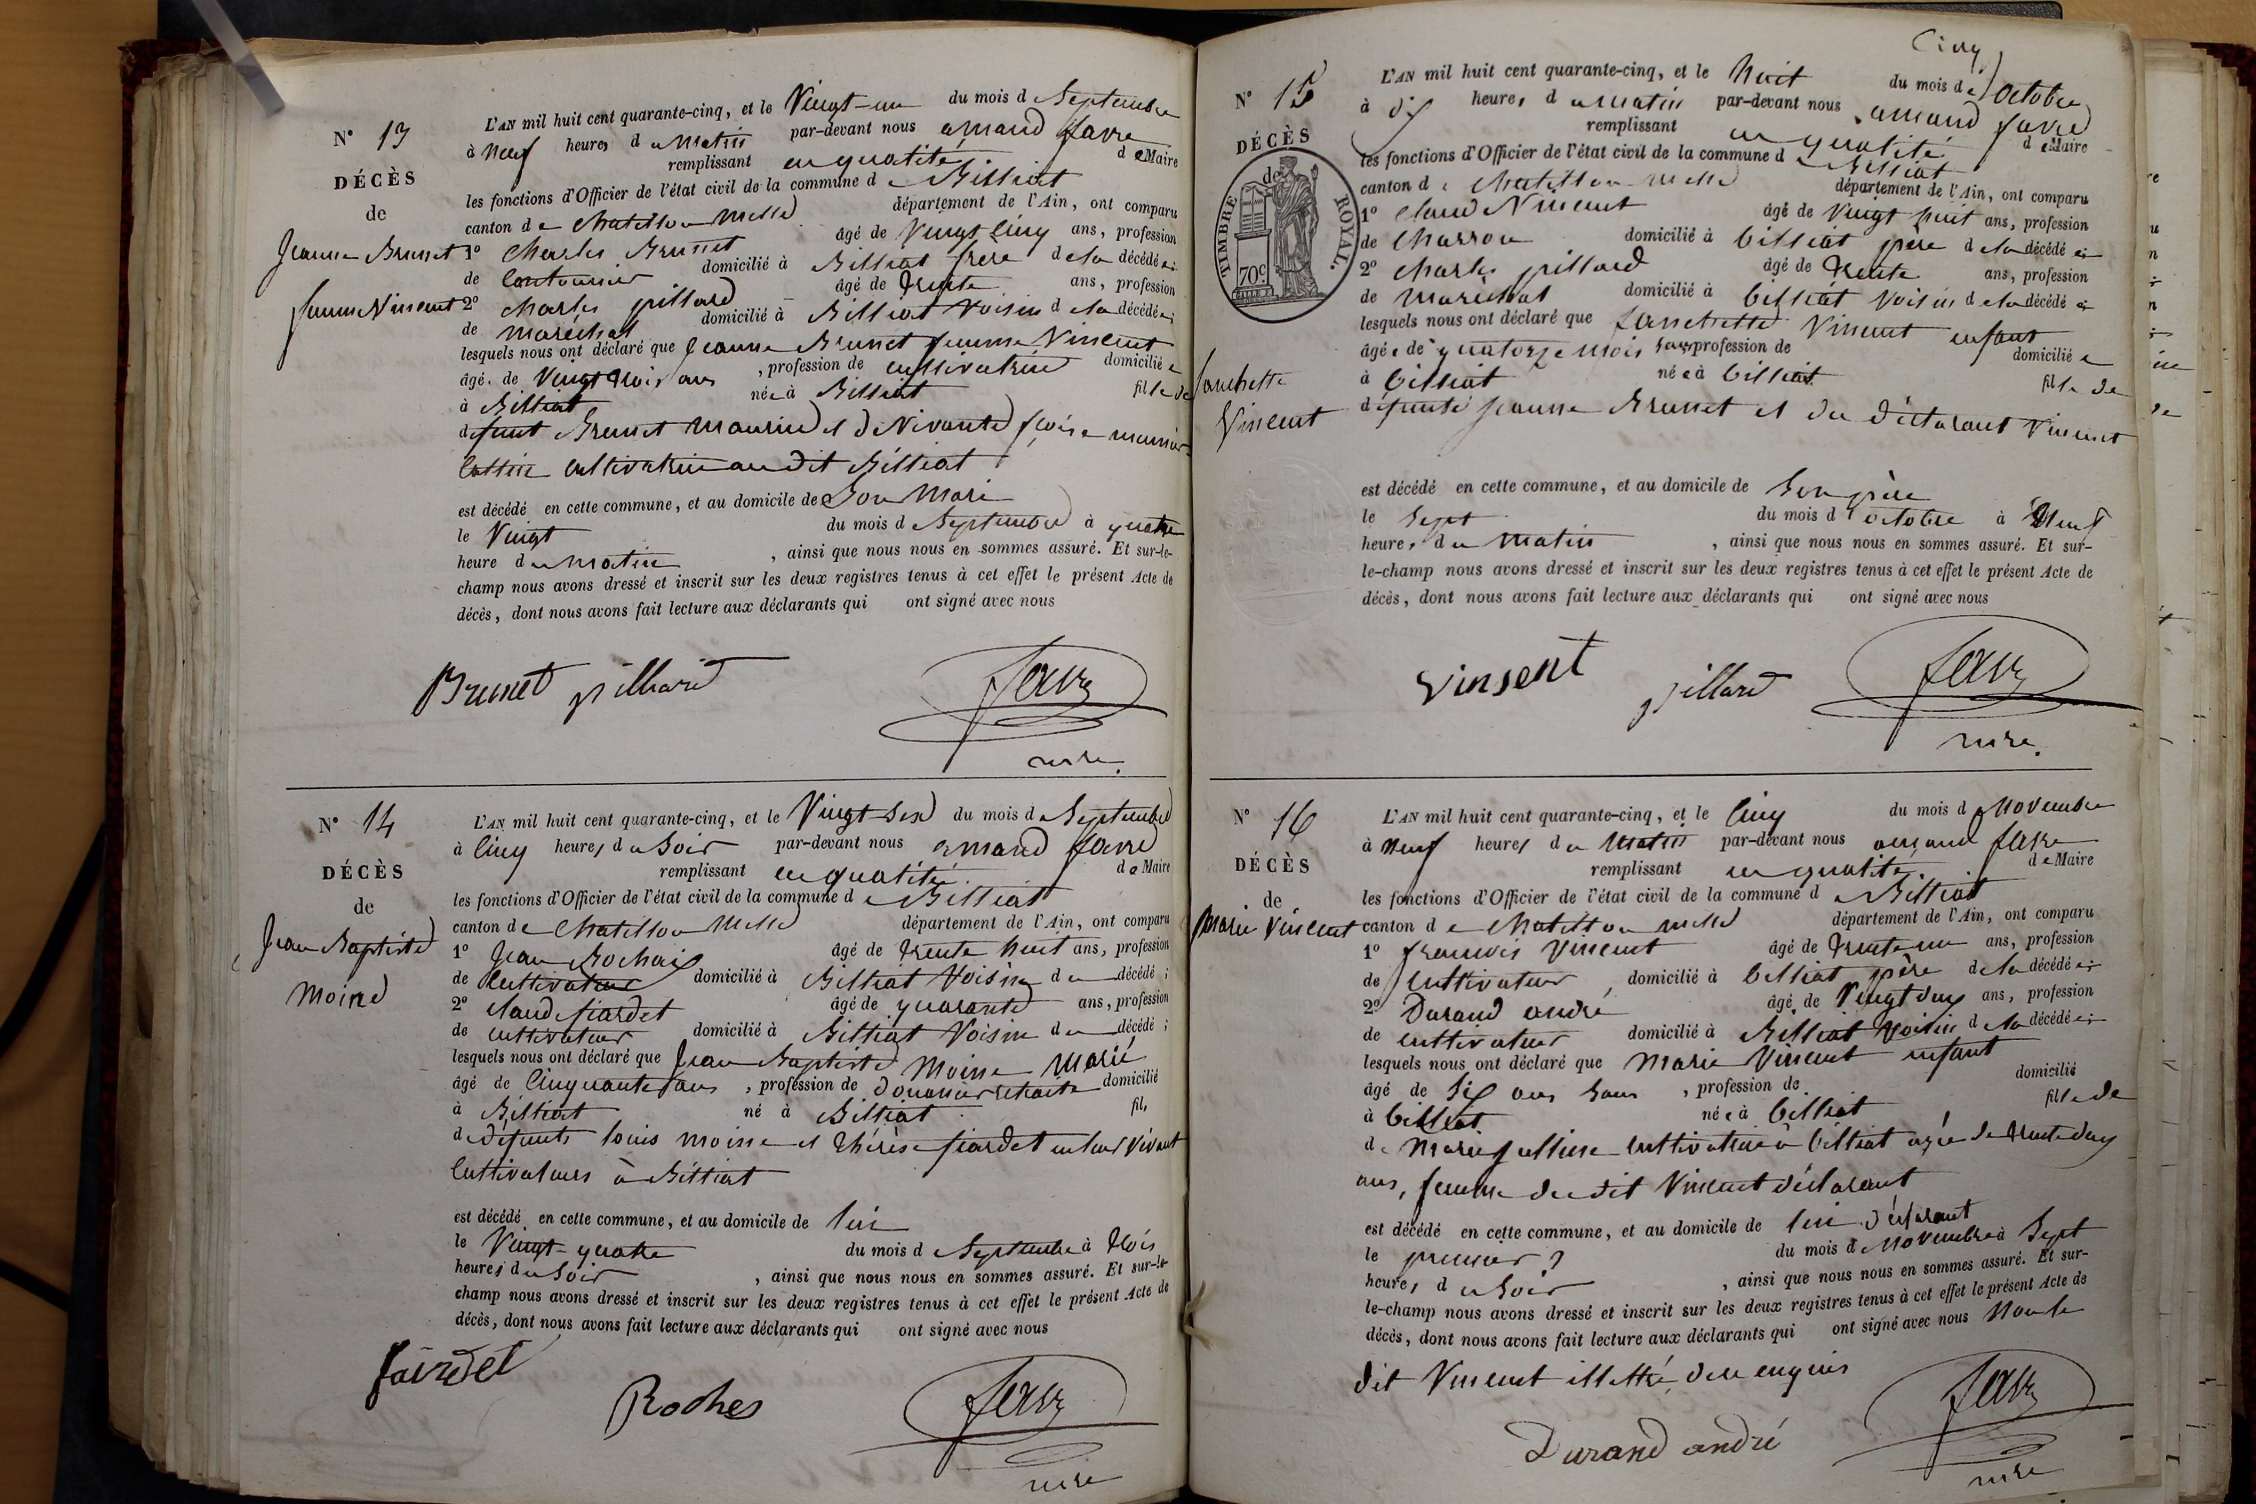 N° 13
DÉCÈS
de
Jeanne Brunet
femme Vincent
L'AN mil huit cent quarante-cinq, et le Vingt-un du mois d Septembre
à Neuf heures du Matin par-devant nous amand favre
remplissant en qualité de Maire
les fonctions d'Officier de l'état civil de la commune de Billiat
canton de Chatillon Mlle département de l'Ain, ont comparu
1° Charles Brunet âgé de Vingt Cinq ans, profession
de domicilié à Billiat frere de la décédée;
2° charles pillard âgé de Trente ans, profession
de maréchal domicilié à Billiat Voisin de la décédée;
lesquels nous ont déclaré que Jeanne Brunet femme Vincent
âgée de Vingt trois ans, profession de cultivatrice domiciliée
à Billiat née à Billiat fille de
défunt Brunet Maurice et de Vivante
cultivatrice au dit Billiat
est décédé en cette commune, et au domicile de Son Mari
le Vingt du mois d Septembre à quatre
heure du Matin, ainsi que nous nous en sommes assuré. Et sur-le-
champ nous avons dressé et inscrit sur les deux registres tenus à cet effet le présent Acte de
décès, dont nous avons fait lecture aux déclarants qui ont signé avec nous
Brunet pillard favre
mre.
N° 14
DÉCÈS
de
Jean Baptiste
Moine
L'AN mil huit cent quarante-cinq, et le Vingt-Six du mois de Septembre
à Cinq heures du Soir par-devant nous amand favre
remplissant en qualité de Maire
les fonctions d'Officier de l'état civil de la commune de Billiat
canton de Chatillon Mlle département de l'Ain, ont comparu
1° Jean Rochaix âgé de Trente huit ans, profession
de Cultivateur domicilié à Billiat Voisin du décédé;
2° claude fiardet âgé de quarante ans, profession
de cultivateur domicilié à Billiat Voisin du décédé;
lesquels nous ont déclaré que Jean Baptiste Moine Marié
âgé de Cinquante ans, profession de Douanier retraité domicilié
à Billiat né à Billiat fils
de défunts louis moine et thérèse fiardet en leur Vivant
Cultivateurs à Billiat
est décédé en cette commune, et au domicile de lui
le Vingt-quatre du mois d Septembre à trois
heures du Soir, ainsi que nous nous en sommes assuré. Et sur-le-
champ nous avons dressé et inscrit sur les deux registres tenus à cet effet le présent Acte de
décès, dont nous avons fait lecture aux déclarants qui ont signé avec nous
fairdet Roches favre
mre
Cinq
N° 15
DÉCÈS
de
TIMBRE ROYAL.
70c
fanchette
Vincent
L'AN mil huit cent quarante-cinq, et le huit du mois d'octobre
à dix heures du matin par-devant nous amand favre
remplissant en qualité de Maire
les fonctions d'Officier de l'état civil de la commune de Billiat
canton de Chatillon Mlle département de l'Ain, ont comparu
1° Claude Vincent âgé de Vingt huit ans, profession
de Charron domicilié à billiat père de la décédée;
2° charles pillard âgé de Trente ans, profession
de Maréchal domicilié à billiat Voisin de la décédée;
lesquels nous ont déclaré que fanchette Vincent enfant
âgée de quatorze mois sans profession de domiciliée
à billiat née à billiat fille de
défunte jeanne Brunet et du déclarant Vincent
est décédé en cette commune, et au domicile de Son père
le Sept du mois d'octobre à Neuf
heures du Matin, ainsi que nous nous en sommes assuré. Et sur-
le-champ nous avons dressé et inscrit sur les deux registres tenus à cet effet le présent Acte de
décès, dont nous avons fait lecture aux déclarants qui ont signé avec nous
Vinsent pillard favre
mre.
N° 16
DÉCÈS
de
Marie Vincent
L'AN mil huit cent quarante-cinq, et le Cinq du mois de Novembre
à Neuf heures du Matin par-devant nous amand favre
remplissant en qualité de Maire
les fonctions d'Officier de l'état civil de la commune de Billiat
canton de Chatillon Mlle département de l'Ain, ont comparu
1° francois Vincent âgé de Trente un ans, profession
de Cultivateur, domicilié à billiat père de la décédée;
2° Durand andré âgé de Vingt deux ans, profession
de cultivateur domicilié à Billiat Voisin de la décédée;
lesquels nous ont déclaré que Marie Vincent enfant
âgé de Six ans Sans, profession de domicilié
à billiat née à billiat fille de
de Marie cultivatrice à billiat agée de trente deux
ans, femme du dit Vincent déclarant
est décédé en cette commune, et au domicile de lui déclarant
le premier du mois de Novembre à Sept
heures du Soir, ainsi que nous nous en sommes assuré. Et sur-
le-champ nous avons dressé et inscrit sur les deux registres tenus à cet effet le présent Acte de
décès, dont nous avons fait lecture aux déclarants qui ont signé avec nous Non le
dit Vincent illettré, de ce enquis
Durand andré favre
mre